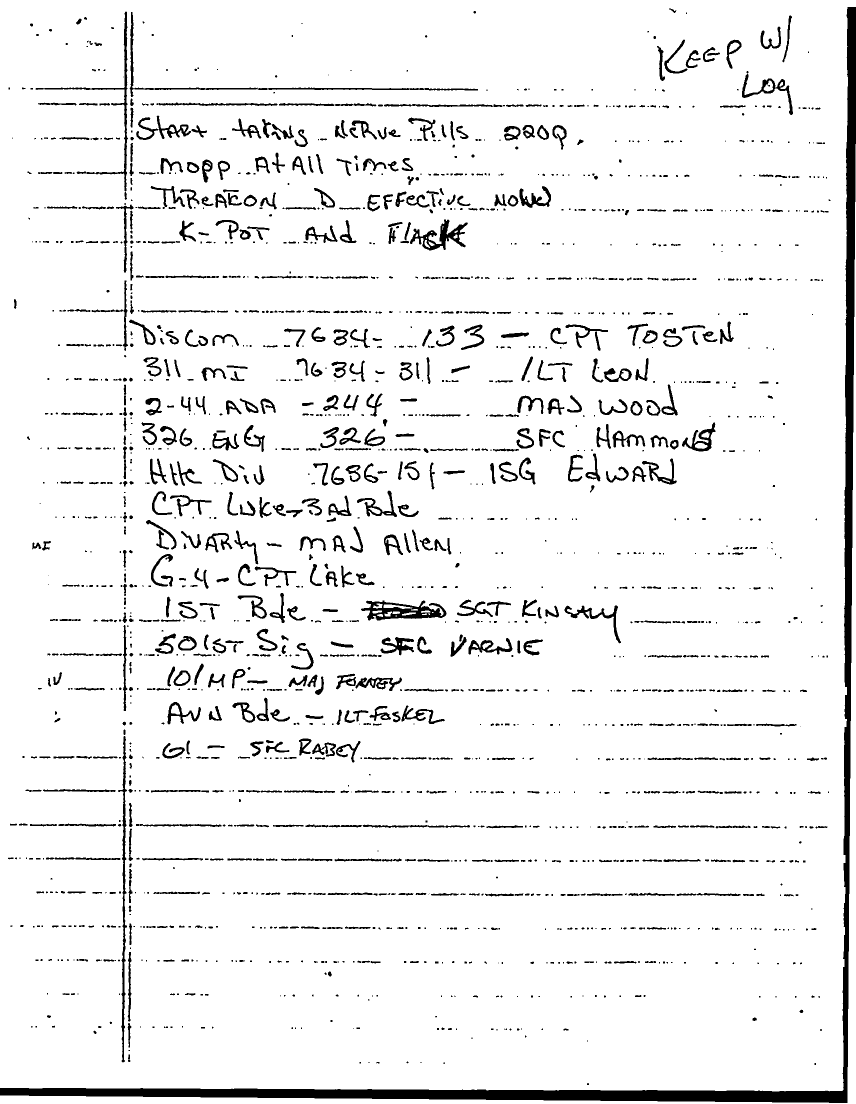 KEEP W/
LOG
START taking Nerve Pills 2200.
MOPP At All Times
THREATCON D EFFECTIVE NOW
K-POT AND FLACK
DISCOM 7634- 133 - CPT TOSTEN
311 MI 7634-311 - 1LT LEON
2-44 ADA -244 - MAJ WOOD
326 ENG 326 - SFC HAMMONS
HHC DIV 7636-151 - 1SG EDWARD
CPT LUKE-3rd Bde
DIVARTY - MAJ ALLEN
G-4 - CPT LAKE
1ST Bde - SGT KINSALY
501ST Sig - SFC VARNIE
101 MP - MAJ FORNEY
AVN Bde - 1LT FOSKEL
G1 - SFC RABEY